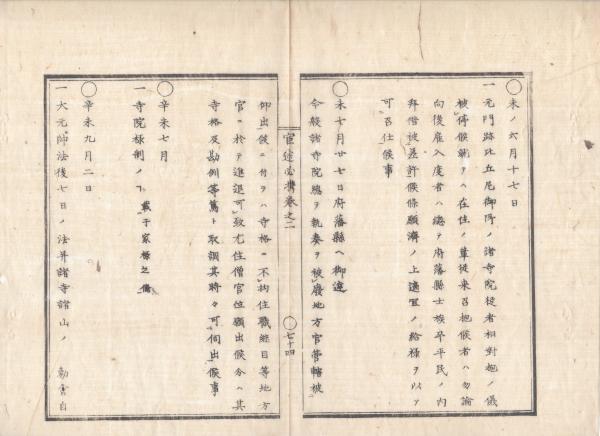 〇未ノ六月十七日
一元門跡比丘尼御所ノ諸寺院從者相對抱ノ儀
被停候就テハ在住ノ輩從来召抱候者ハ勿論
向後雇入度者ハ總テ府藩縣士族卒平民ノ内
拜借被差許候條願濟ノ上適宜ノ給禄ヲ以テ
可召仕候事
〇未七月廿七日府藩縣ヘ御達
今般諸寺院總テ執奏ヲ被廢地方官管轄被
官途必携巻之二
〇七十四
仰出候ニ付テハ寺格ニ不拘住職継目等地方
官ニ於テ進退可致尤住僧官位願出候分ハ其
寺格及勘例等篤ト取調其時々可伺出候事
〇辛未七月
一寺院禄制ノ下載于家禄之僃
〇辛未九月二日
一大元帥法後七日ノ法并諸寺諸山ノ 勅會自